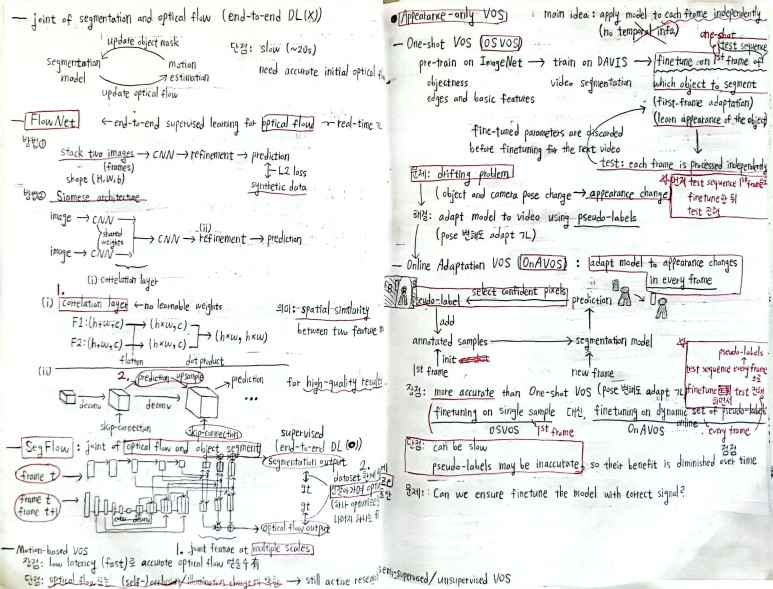 — joint of segmentation and optical flow (end-to-end DL(X))
update object mask
segmentation model
motion estimation
update optical flow
단점: slow (~20s)
need accurate initial optical
— FlowNet ← end-to-end supervised learning for optical flow — real-time
방법①
stack two images → CNN → refinement → prediction
(frames)
shape (H,W,6)
L2 loss
synthetic data
방법② Siamese architecture
image → CNN
shared weights
image → CNN
(ii)
→ CNN → refinement → prediction
(i) correlation layer
1.
(i) correlation layer ← no learnable weights
F1: (h*w,c) → (h×w,c)
F2: (h*w,c) → (h×w,c)
→ (h×w, h×w)
flatten
dot product
의미: spatial-similarity
between two feature
(ii)
2. prediction upsample
→ prediction
deconv
deconv
...
for high-quality results
skip-connection
skip-connection
— SegFlow : joint of optical flow and object segment
supervised
(end-to-end DL(O))
segmentation output
frame t
frame t
frame t+1
conv deconv
gt
gt
optical flow output
2.
dataset
1. joint feature at multiple scales
— Motion-based VOS
장점: low latency (fast)로 accurate optical flow 얻을수有
단점: → still active
semi-supervised/unsupervised VOS
● Appearance-only VOS
main idea: apply model to each frame independently
(no temporal info)
— One-shot VOS (OSVOS)
one-shot
test sequence
pre-train on ImageNet → train on DAVIS → finetune on 1st frame of
objectness
video segmentation
which object to segment
edges and basic features
(first-frame adaptation)
(learn appearance of the object)
fine-tuned parameters are discarded
before finetuning for the next video
test: each frame is processed independently
문제: drifting problem
먼저 test sequence 1st frame으로
finetune한 뒤
test 진행
(object and camera pose change → appearance change)
해결: adapt model to video using pseudo-labels
(pose 변해도 adapt 가능)
— Online Adaptation VOS (OnAVOS) : adapt model to appearance changes
in every frame
pseudo-label ← select confident pixels — prediction
add
annotated samples → segmentation model
init
1st frame
new frame
pseudo-labels
test sequence every frame
finetune
하면서
test 진행
장점: more accurate than One-shot VOS (pose 변해도 adapt
finetuning on single sample 대신, finetuning on dynamic set of pseudo-labels
online
OSVOS
1st frame
OnAVOS
every frame
장점
단점: can be slow
pseudo-labels may be inaccurate, so their benefit is diminished over time
문제: Can we ensure finetune the model with correct signal?